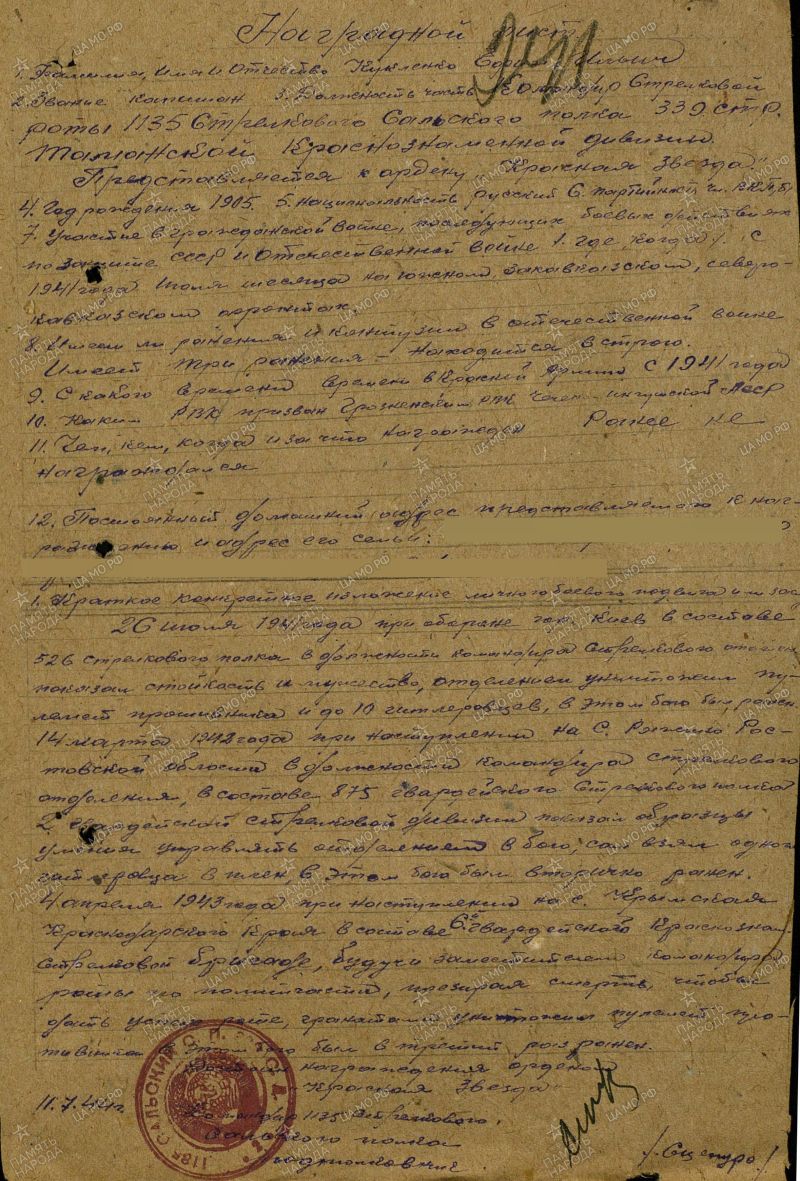 Наградной лист
1. Фамилия, Имя и Отчество Ильич
2. Звание капитан 3. Должность часть Командир Стрелковой
роты 1135 Стрелкового Сальского полка 339 стр.
Таманской Краснознаменной дивизии.
Представляется к ордену "Красная Звезда"
4. Год рождения 1905. 5. Национальность русский 6. Партийность чл. ВКП(б)
7. Участие в гражданской войне, последующих боевых действиях
по защите СССР и отечественной войне (где, когда). С
1941 года июля месяца на Южном, Закавказском, Северо-
кавказском фронтах.
8. Имеет ли ранения и контузии в отечественной войне
Имеет три ранения - находится в строю.
9. С какого времени времени в Красной Армии С 1941 года
10. Каким РВК призван Грозненским РВК Чечен-ингушской АССР
11. Чем, кем, когда и за что награжден Ранее не
награждался
12. Постоянный домашний адрес представляемого к наг-
раждению и адрес его семьи:
1. Краткое конкретное изложение личного боевого подвига или
26 июля 1941 года при обороне гор. Киев в составе
526 стрелкового полка в должности командира стрелкового
показал стойкость и мужество, отделением уничтожил пу-
лемет противника и до 10 гитлеровцев, в этом бою был ранен.
14 марта 1942 года при наступлении на С. Ряженое Рос-
товской области в должности командира стрелкового
отделения, в составе 875 гвардейского стрелкового полка
2 гвардейской стрелковой дивизии показал образцы
умения управлять отделением в бою, сам взял одного
гитлеровца в плен, в этом бою был вторично ранен.
4 апреля 1943 года при наступлении на с. Крымская
Краснодарского Края в составе 6й гвардейского Краснознам.
Стрелковой бригаде, будучи заместителем командира
роты по политчасти, презирая смерть, чтобы
дать успех роте, гранатами уничтожил пулемет про-
тивника в этом бою был в третий раз ранен.
Достоин награждения орденом
"Красная Звезда"
11.7.44 г.
Командир 1135 Стрелкового
Сальского полка
подполковник /Сцепуро/
САЛЬСКИЙ С.П.
ПАМЯТЬ НАРОДА
ЦА МО.РФ